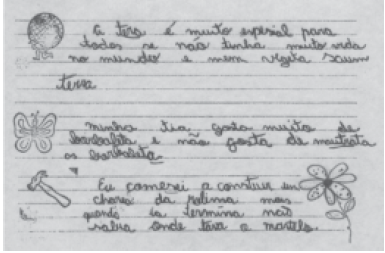 a tera é muito espesial para
todos se não tinha muito vida
no mundo e nem vegeta
terra
minha tia gosta muitos de
barbaleta e não gosta de
as barbaleta
Eu comesei a constuir um
da mas
quando ia termina não
sabia onde tava o martelo.